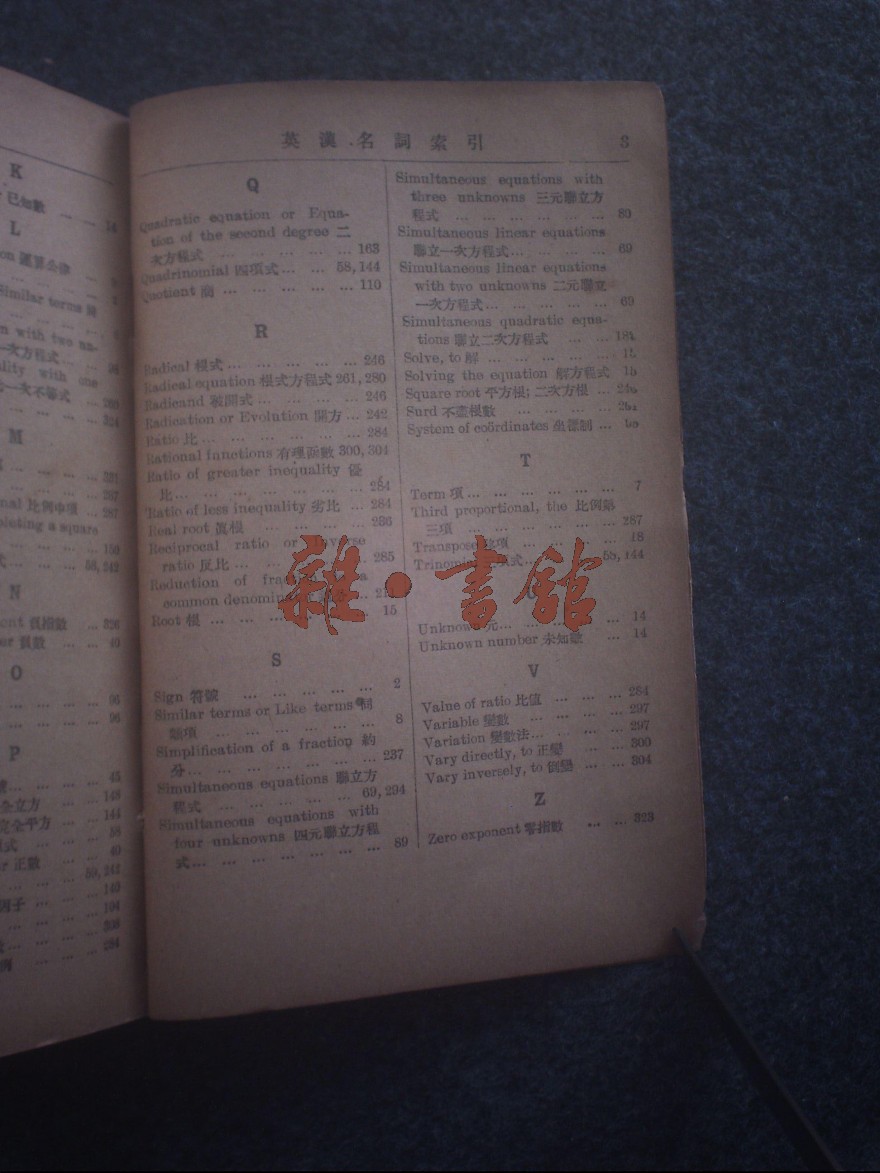 K
已知數 … … 14
L
Similar terms
n with two un-
一次方程式…
quality with one
一次不等式 …
M
… … … 287
比例中項 … 287
pleting a square
… … … … 150
N
負指數 … 326
負數 … … 40
O
… … … … 96
… … … … 96
P
… … … … 45
全立方 … … 148
完全平方 … … 144
正數 … … 40
因子 … … 140
… … … … 194
英漢名詞索引 3
Q
Quadratic equation or Equa-
tion of the second degree 二
次方程式 … … … … … 163
Quadrinomial 四項式… … 58, 144
Quotient 商 … … … … … … 110
R
Radical 根式… … … … … … 246
Radical equation 根式方程式 261, 280
Radicand 被開式… … … … … 246
Radication or Evolution 開方 … 242
Ratio 比… … … … … … … 284
Rational functions 有理函數 300, 304
Ratio of greater inequality 優
比… … … … … … … … 284
Ratio of less inequality 劣比 … 284
Real root 眞根 … … … … … 236
Reciprocal ratio or Inverse
ratio 反比 … … … … … 285
Reduction of
common
Root 根 … … … … … 15
S
Sign 符號 … … … … … 2
Similar terms or Like terms 同
類項 … … … … … … … 8
Simplification of a fraction 約
分… … … … … … … … 237
Simultaneous equations 聯立方
程式 … … … … … … 69, 294
Simultaneous equations with
four unknowns 四元聯立方程
式… … … … … … … … 89
Simultaneous equations with
three unknowns 三元聯立方
程式 … … … … … … … 89
Simultaneous linear equations
聯立一次方程式… … … … … 69
Simultaneous linear equations
with two unknowns 二元聯立
一次方程式… … … … … … 69
Simultaneous quadratic equa-
tions 聯立二次方程式 … …
Solve, to 解 … … … … … … 15
Solving the equation 解方程式 15
Square root 平方根; 二次方根 …
Surd 不盡根數 … … … …
System of coördinates 坐標制 …
T
Term 項… … … … … … … 7
Third proportional, the 比例第
三項 … … … … … … … 287
Transpose 移項 … … … … 18
式… … … 58, 144
Unknown 元… … … … … 14
Unknown number 未知數 … 14
V
Value of ratio 比值 … … … 284
Variable 變數 … … … … … 297
Variation 變數法… … … … … 297
Vary directly, to 正變 … … 300
Vary inversely, to 倒變 … … 304
Z
Zero exponent 零指數 … … 323
雜·書館